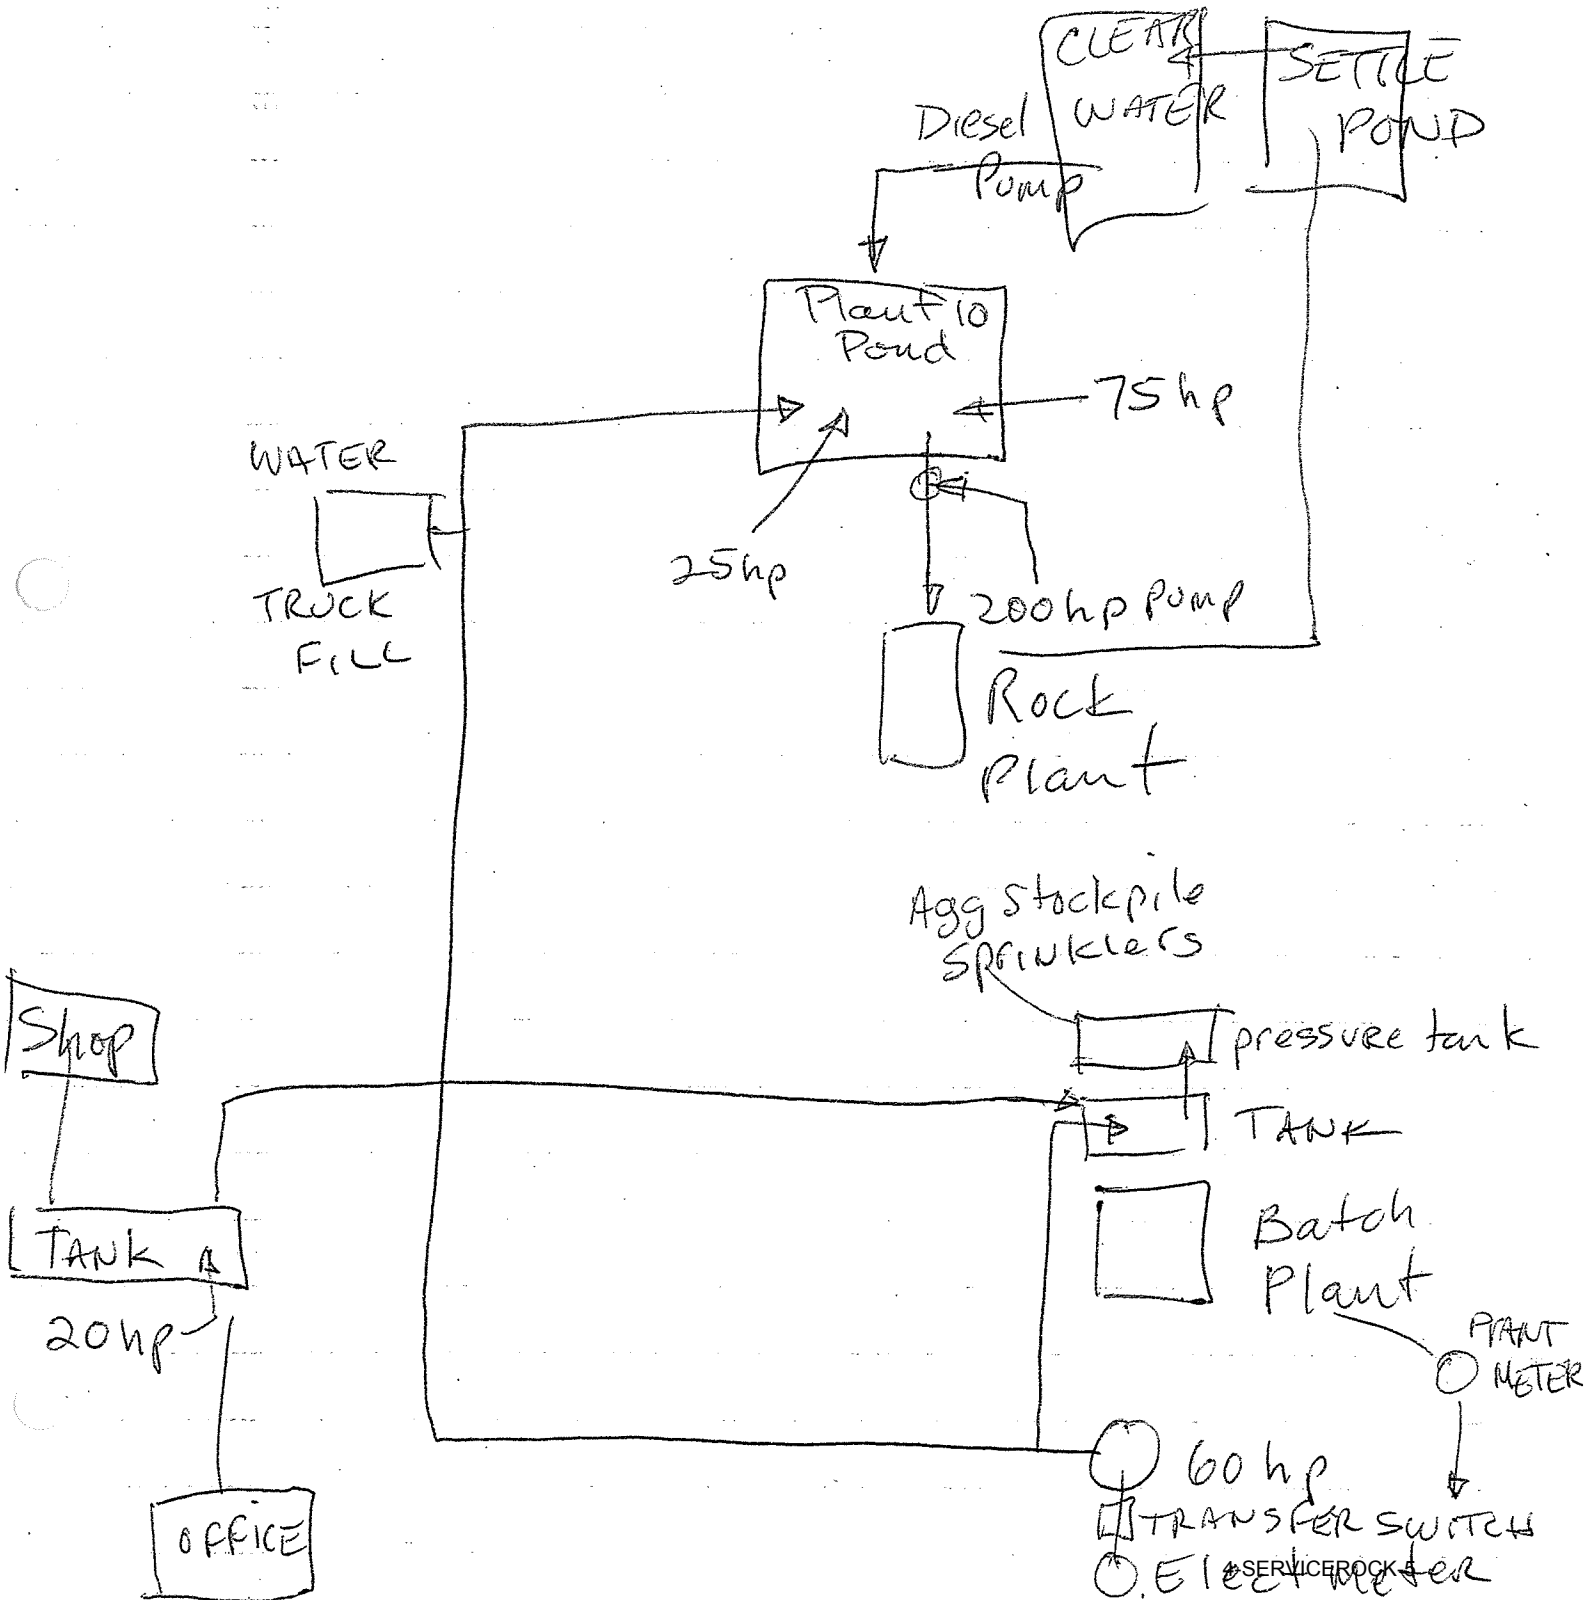 CLEAR
WATER
SETTLE
POND
Diesel
Pump
Plant 10
Pond
75hp
WATER
TRUCK
FILL
25hp
200hp Pump
Rock
Plant
Agg Stockpile
Sprinklers
pressure tank
TANK
Shop
TANK
20hp
Batch
Plant
PLANT
METER
60hp
TRANSFER SWITCH
Elect Meter
4-SERVICEROCK-5
OFFICE